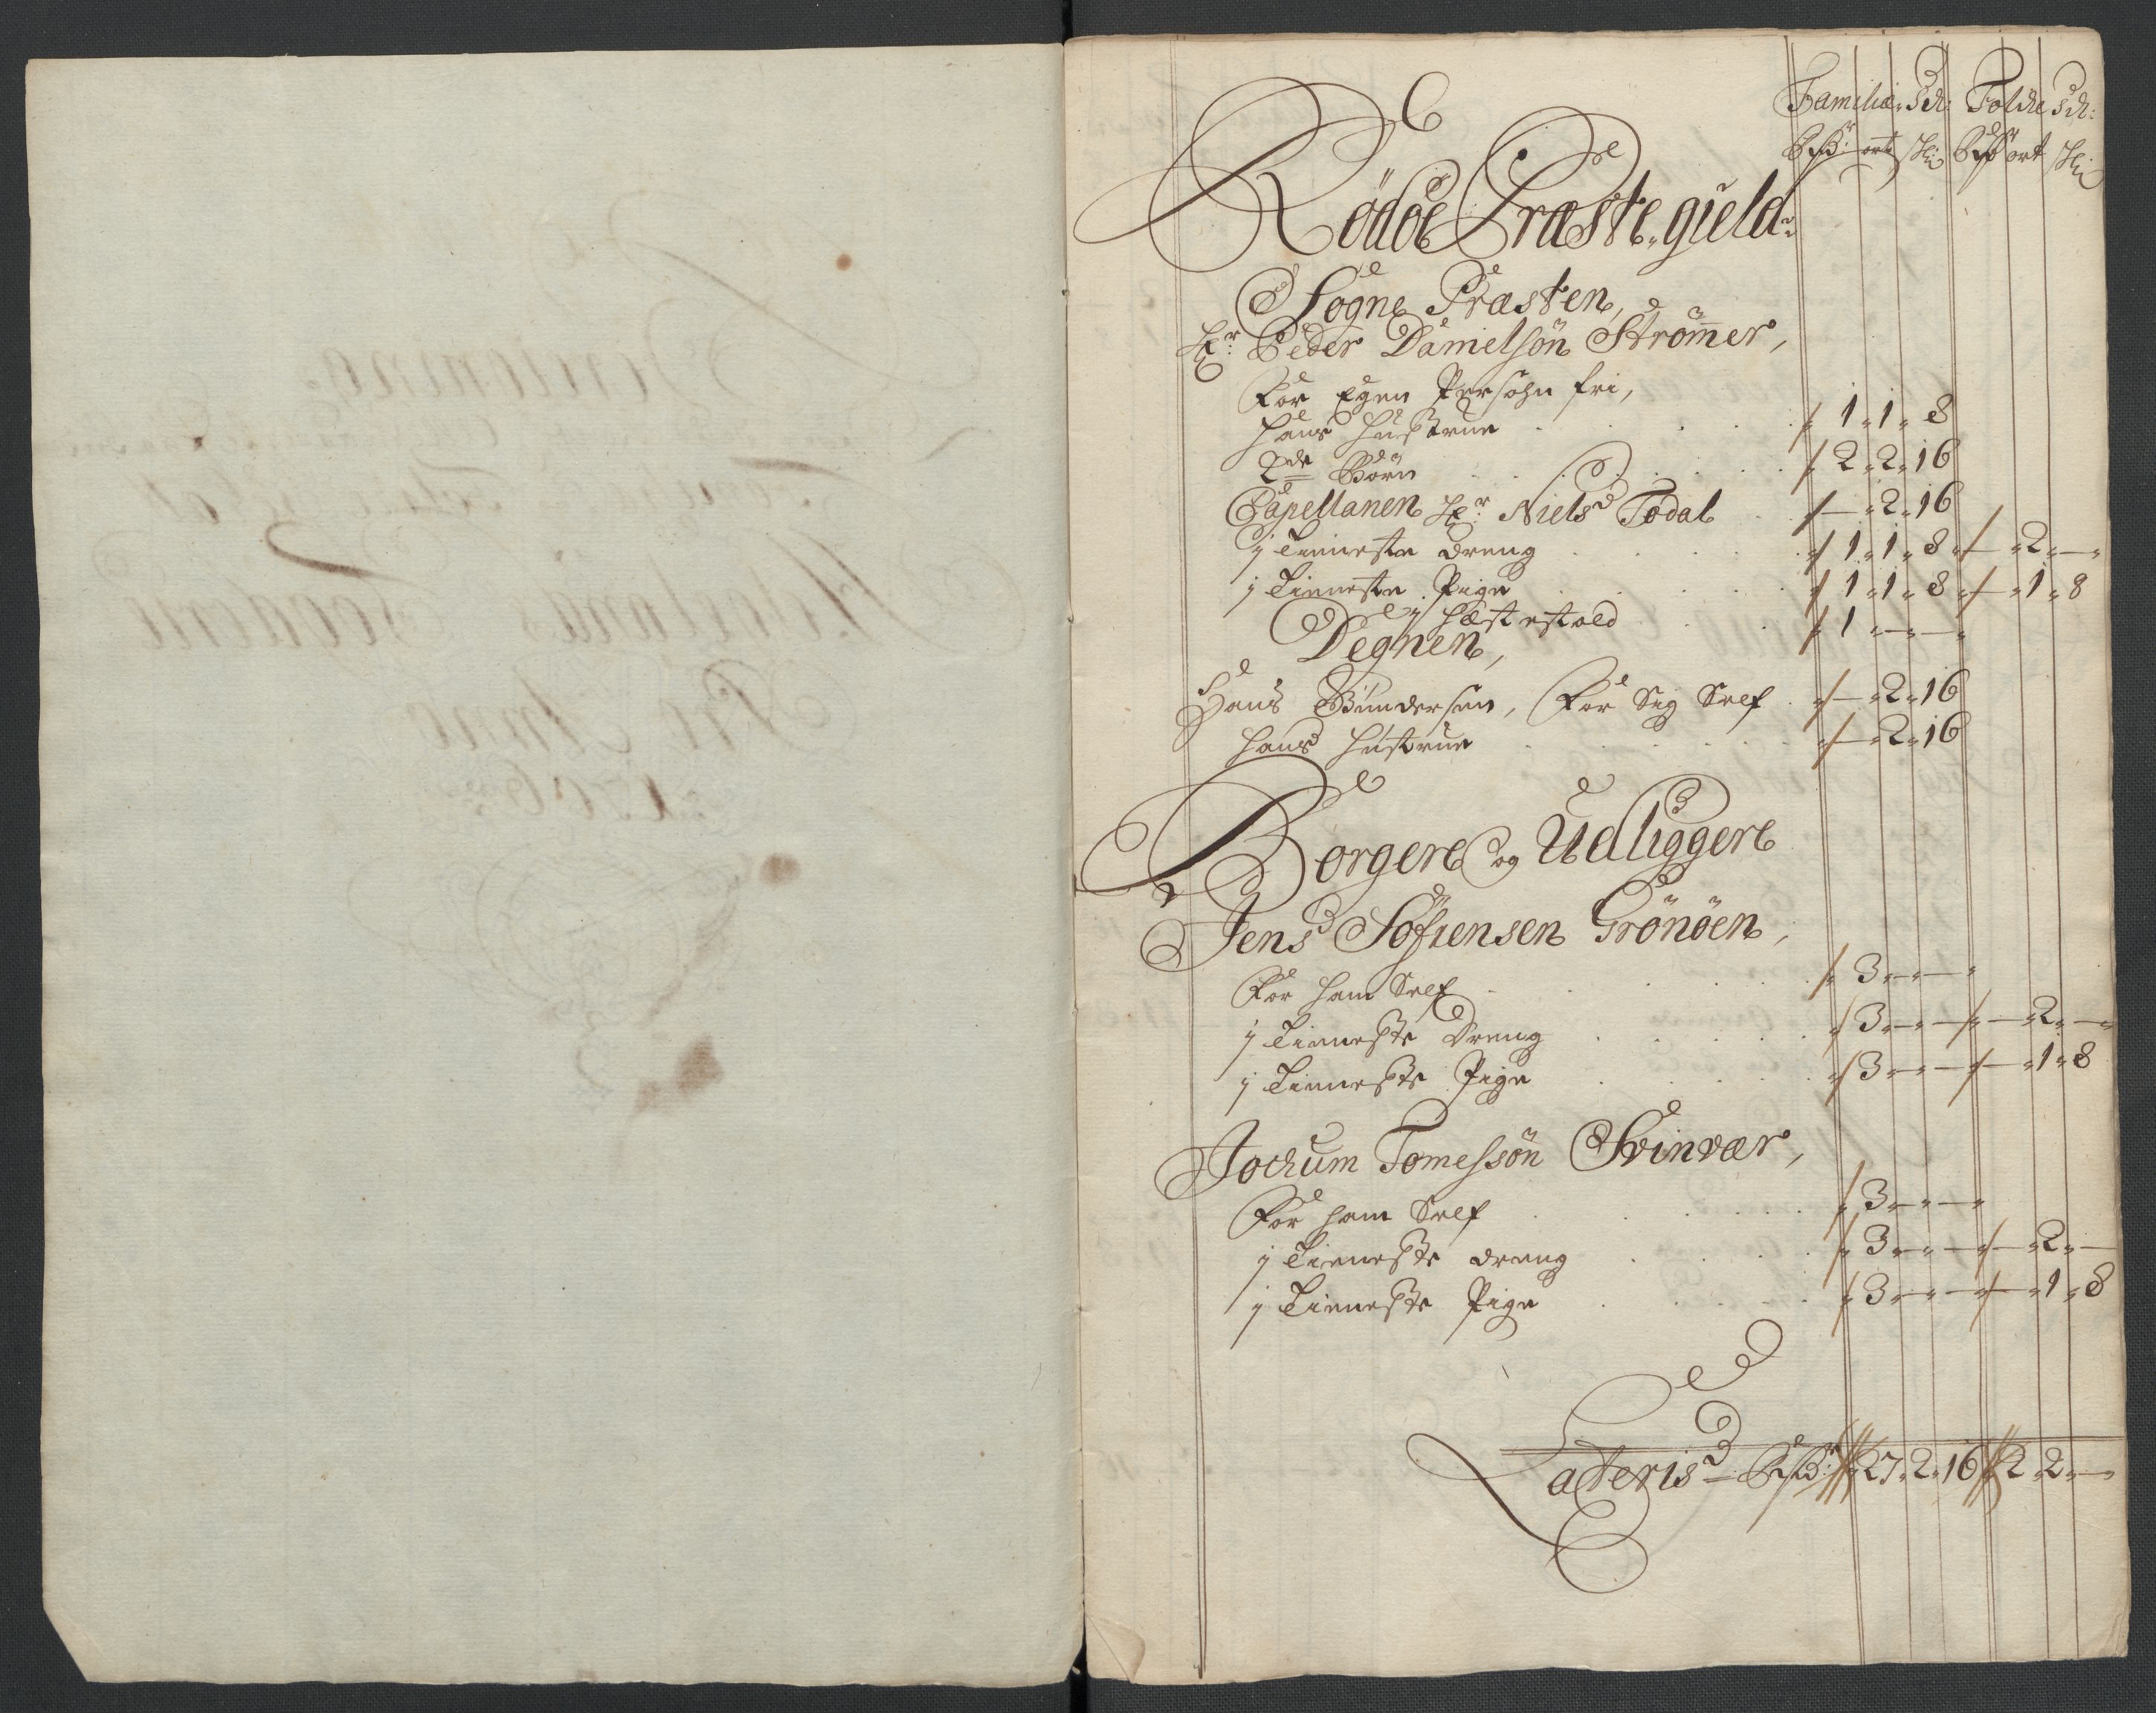 Familiæ Sch: Folche Sch:
Rdr: ort sk: Rdr ort sk:
Rödöe Præste gield
Sogne Præsten,
Hr: Peder Danielsön Strömer,
For Egen Persohn fri,
Hans Hustrue 1 1 8
2de Börn 2 2 16
Capellanen Hr: Niels Todal - 2 16
1 Tieneste dreng 1 1 8 - 2 -
1 Tieneste Pige 1 1 8 - 1 8
1 Hæstestald 1 - -
Degnen,
Hans For Sig Self - 2 16
Hans Hustrue - 2 16
Borgere og Udliggere
Jens Söfrensen Grönöen,
For ham Self 3 - -
1 Tieneste Dreng 3 - - - 2 -
1 Tieneste Pige 3 - - - 1 8
Jochum Tomessön Svinvær,
For ham Self 3 - -
1 Tieneste dreng 3 - - - 2 -
1 Tieneste Pige 3 - - - 1 8
Lateris - Rdr: 27 2 16 2 2 -